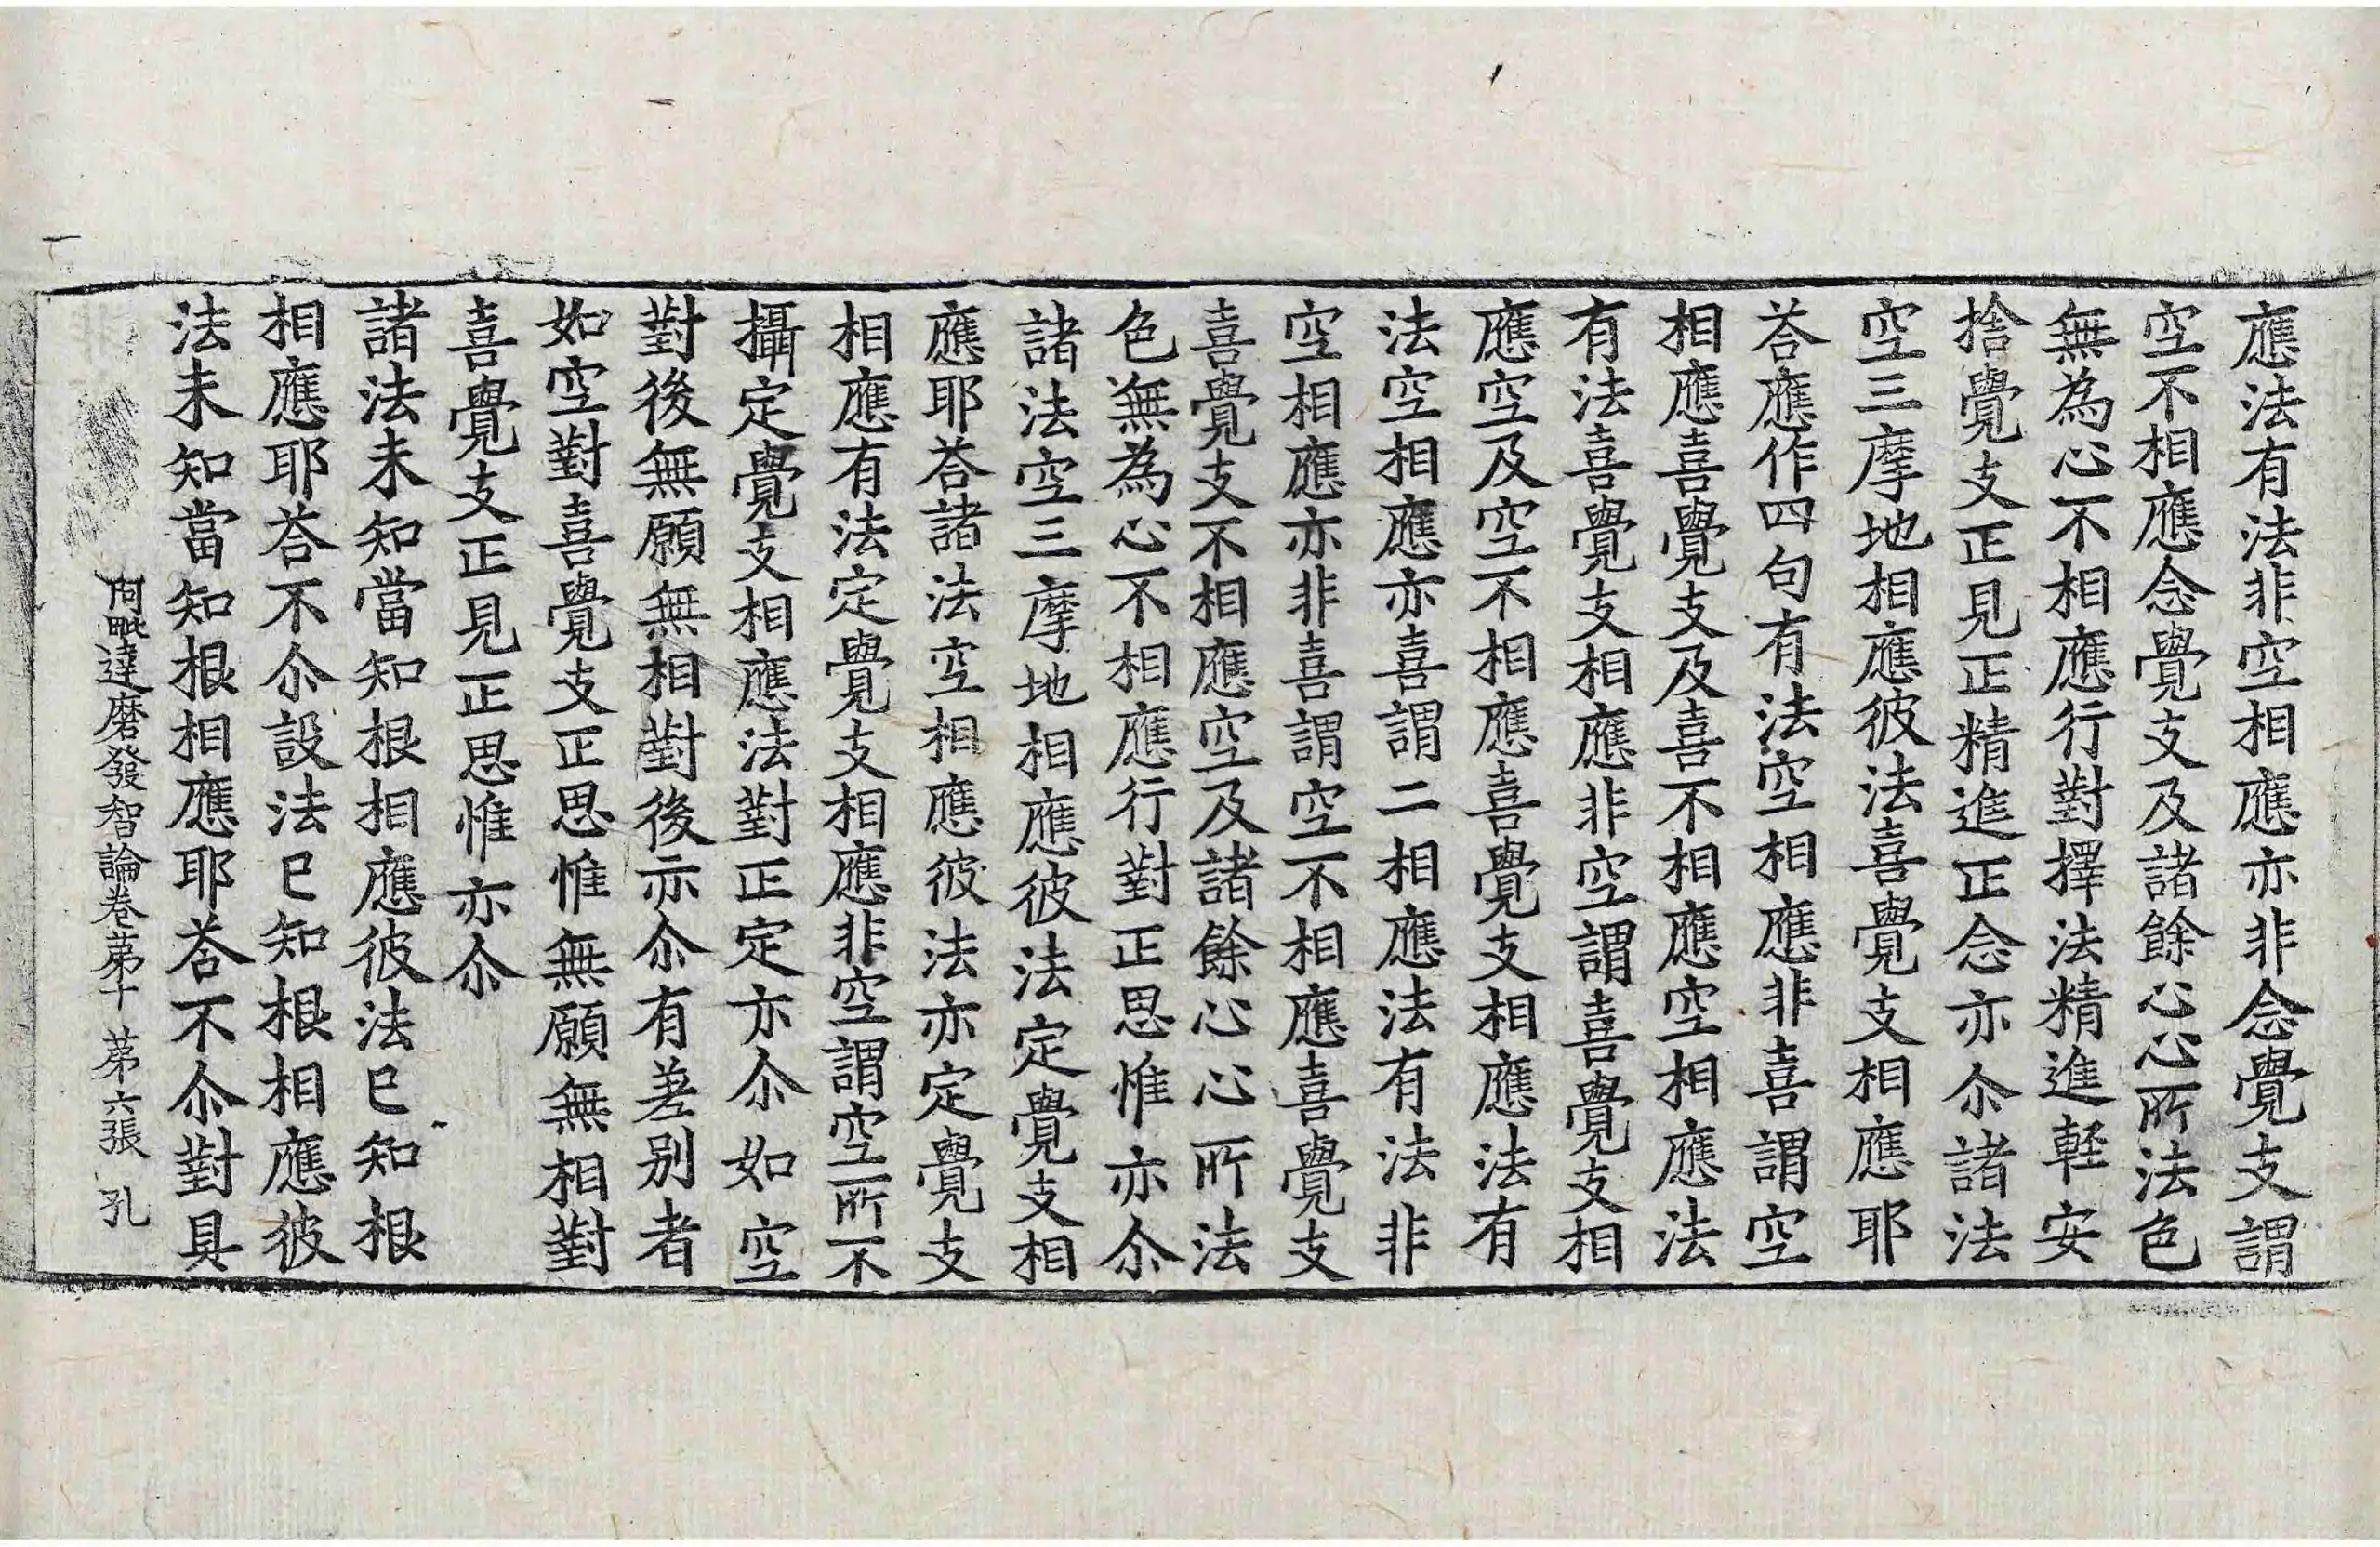 應法有法非空相應亦非念覺支謂
空不相應念覺支及諸餘心心所法色
無為心不相應行對擇法精進軽安
捨覺支正見正精進正念亦尒諸法
空三摩地相應彼法喜覺支相應耶
荅應作四句有法空相應非喜謂空
相應喜覺支及喜不相應空相應法
有法喜覺支相應非空謂喜覺支相
應空及空不相應喜覺支相應法有
法空相應亦喜謂二相應法有法非
空相應亦非喜謂空不相應喜覺支
喜覺支不相應空及諸餘心心所法
色無為心不相應行對正思惟亦尒
諸法空三摩地相應彼法定覺支相
應耶荅諸法空相應彼法亦定覺支
相應有法定覺支相應非空謂空所不
攝定覺支相應法對正定亦尒如空
對後無願無相對後亦尒有差別者
如空對喜覺支正思惟無願無相對
喜覺支正見正思惟亦尒
諸法未知當知根相應彼法已知根
相應耶荅不尒設法已知根相應彼
法未知當知根相應耶荅不尒對具
阿毗達磨發智論卷苐十 苐六張 孔